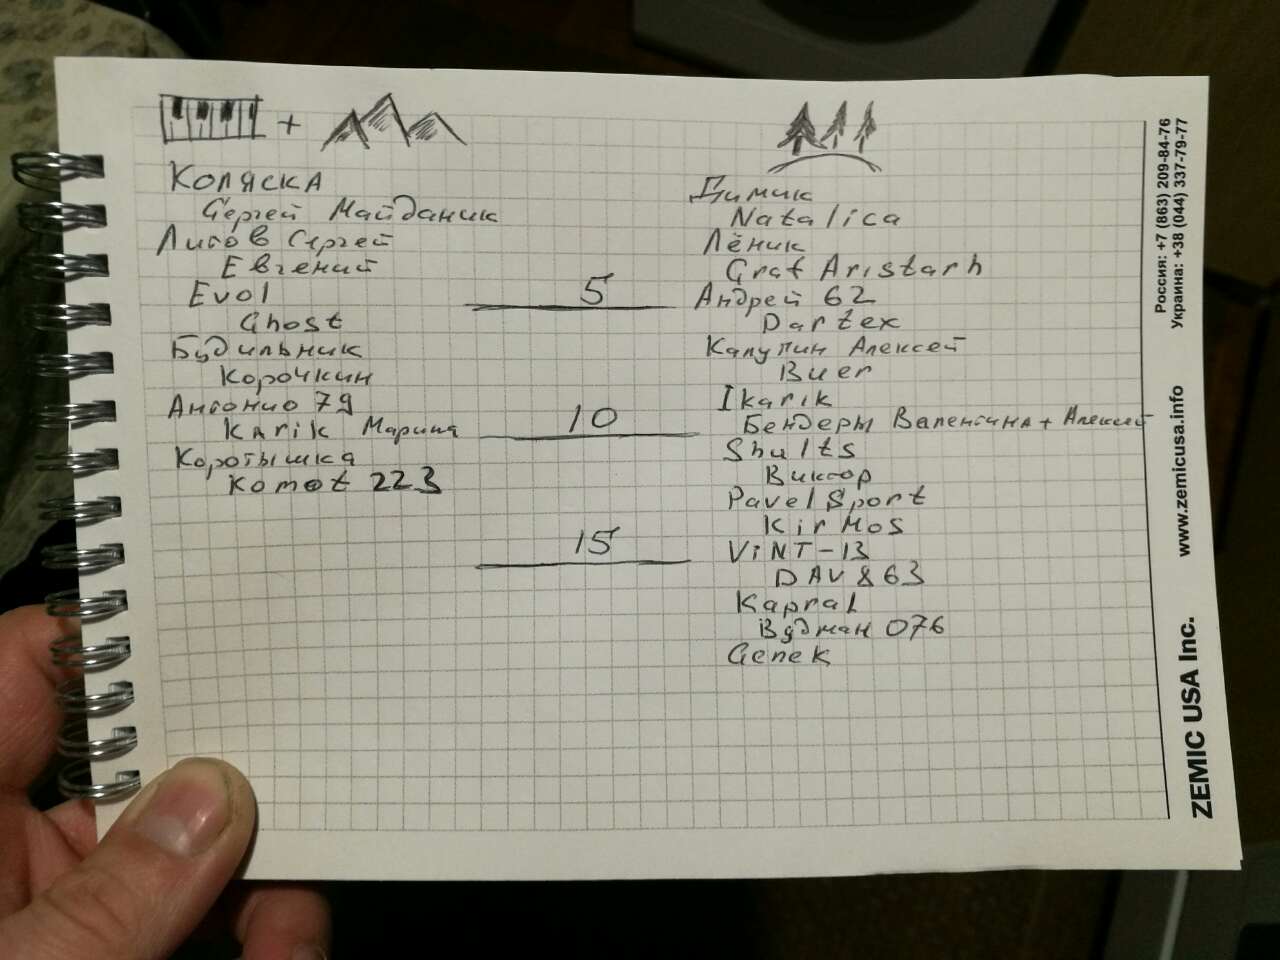 Коляска
Сергей Майданик
Литов Сергей
Евгений
Evol
Ghost
Будильник
Корочкин
Антонио 79
Karik Марина
Коротышка
Komot 223
5
10
15
Димик
Natalica
Лёник
Graf Aristarh
Андрей 62
Dartex
Калупин Алексей
Buer
Ikarik
Бендеры Валентина + Алексей
Shults
Виктор
Pavel Sport
Kir Mos
ViNT-13
DAV & 63
Kapral
Вудман 076
Genek
Россия: +7 (863) 209-84-76
Украина: +38 (044) 337-79-77
www.zemicusa.info
ZEMIC USA Inc.